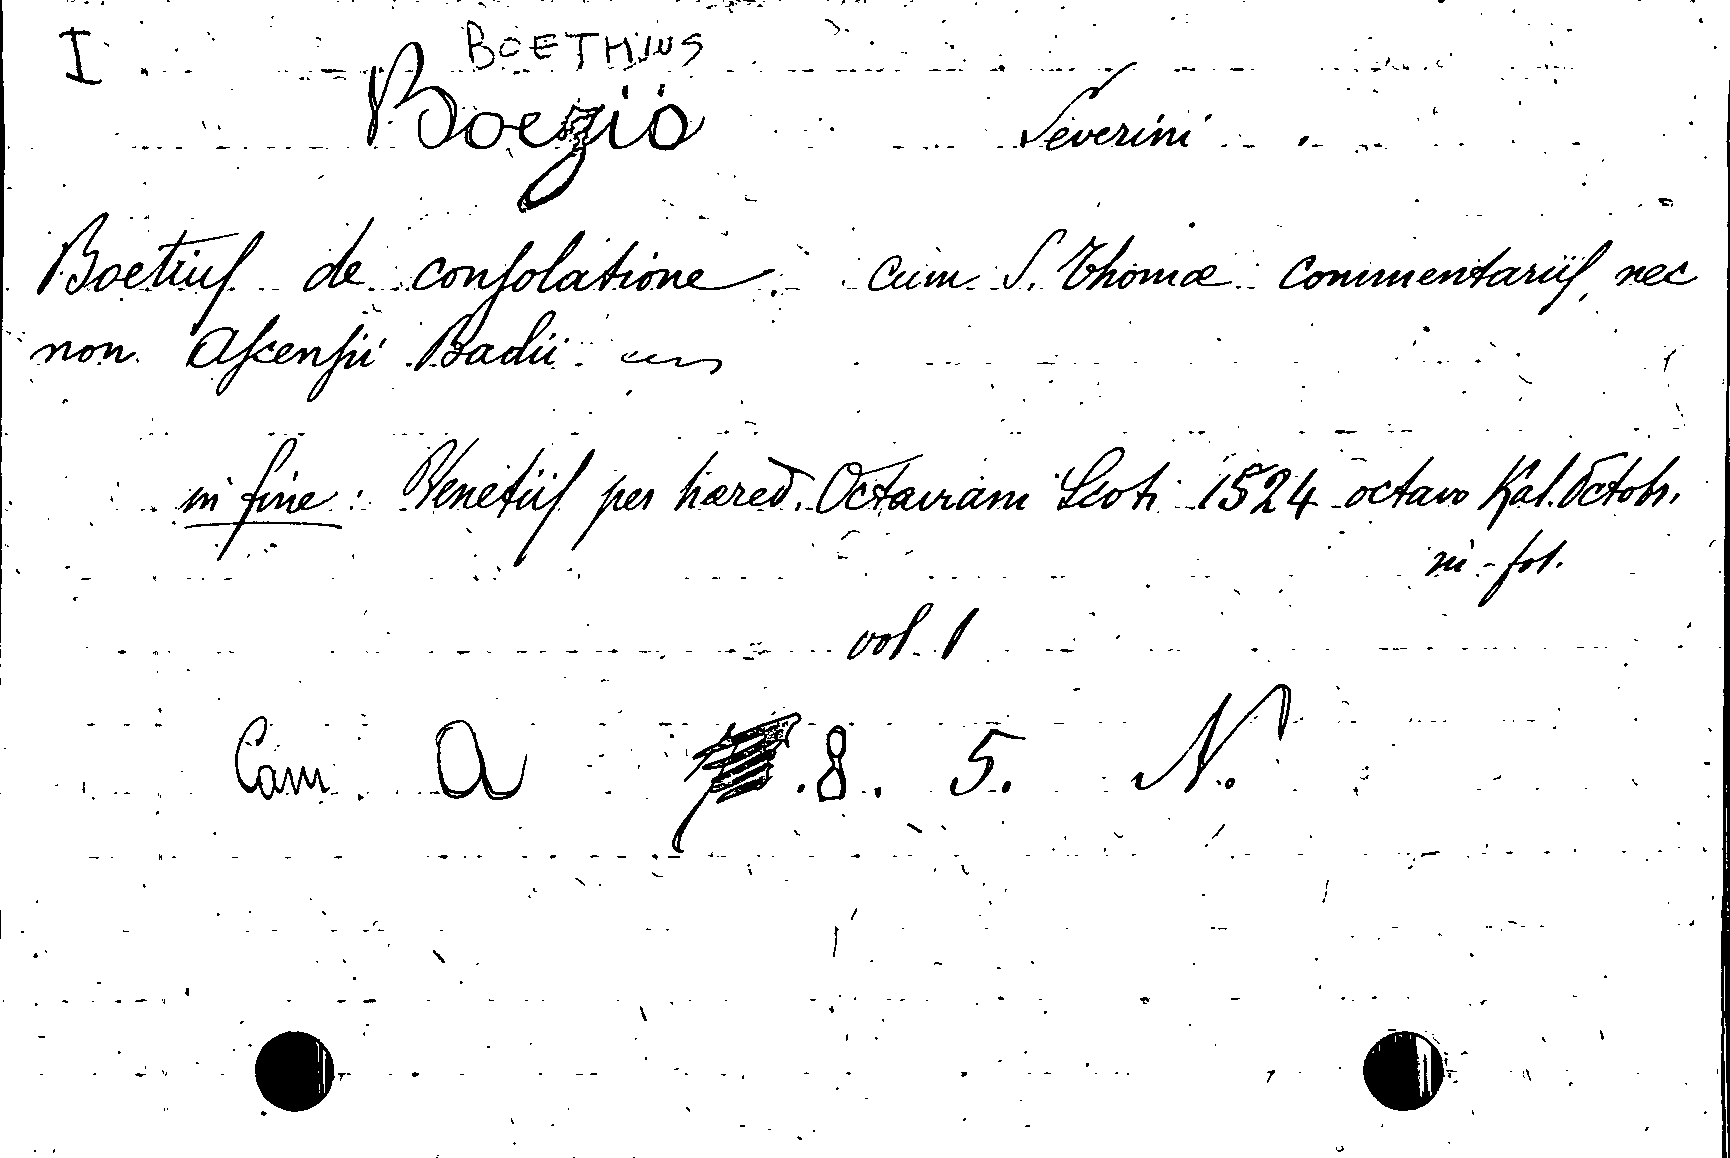 I
BOETHIUS
Boezio Severini
Boetiuſ de conſolatione. cum S. Thomæ commentariiſ, nec
non Aſcenſii Badii
in fine: Venetiiſ per hæred. Octaviani Scoti 1524 octavo Kal. Octobr.
in-fol.
vol. 1
Cam A .8. 5. N.